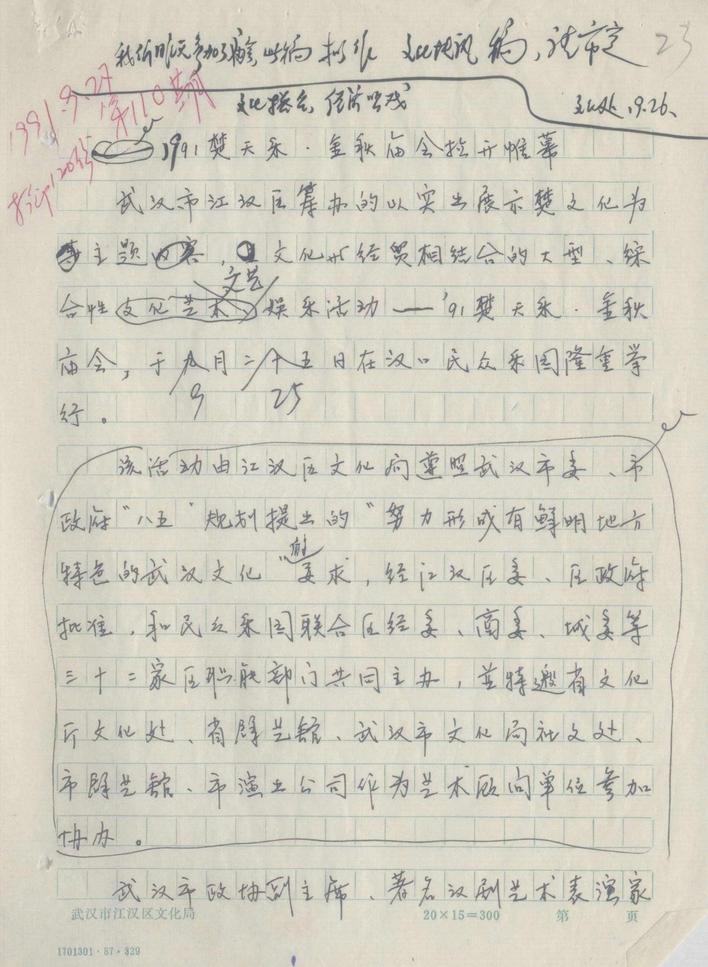 我们昨天参加了 此稿拟作 文化快风 稿，请审定
23
1991.9.27
第110期
打印120份
文化搭台，经济唱戏
文化处.9.26.
1991楚天乐·金秋庙会拉开帷幕
武汉市江汉区筹办的以突出展示楚文化为
主题内容，以文化与经贸相结合的大型、综
文艺
合性文化艺术娱乐活动——'91楚天乐·金秋
庙会，于九月二十五日在汉口民众乐园隆重举
9 25
行。
该活动由江汉区文化局遵照武汉市委、市
政府"八五"规划提出的"努力形成有鲜明地方
特色的武汉文化"的要求，经江汉区委、区政府
批准，和民众乐园联合区经委、商委、城委等
三十二家区职能部门共同主办，并特邀省文化
厅文化处、省群艺馆、武汉市文化局社文处、
市群艺馆、市演出公司作为艺术顾问单位参加
协办。
武汉市政协副主席、著名汉剧艺术表演家
武汉市江汉区文化局 20×15=300 第 页
1701301·87·329